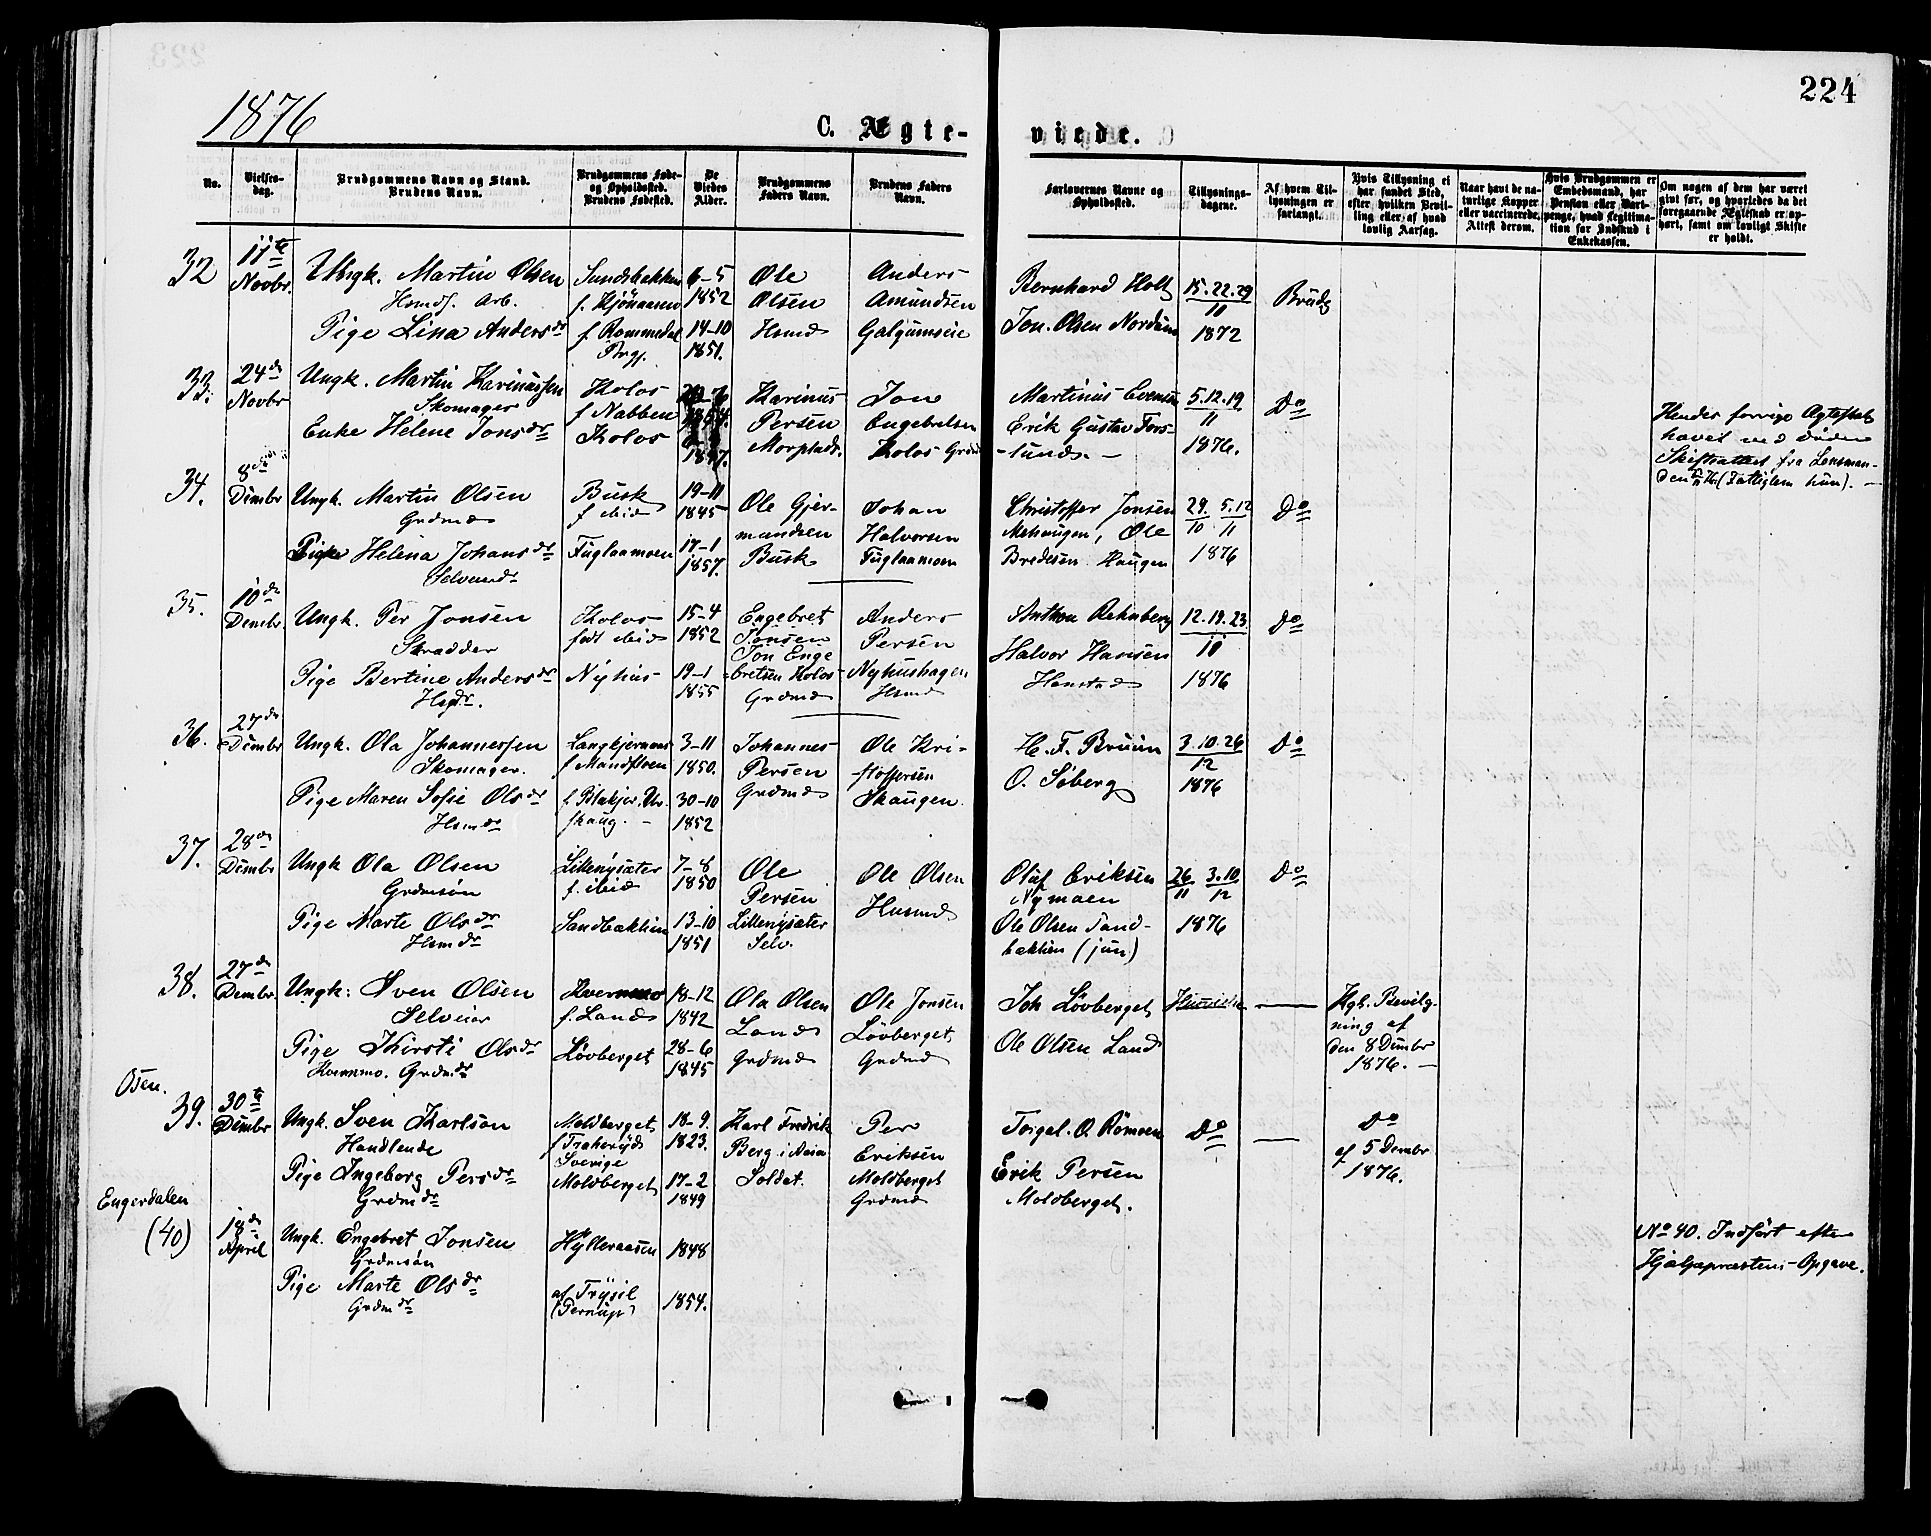 224
1876
C. Ægte-
viede.
No.
Vielses-
dag.
Brudgommens Navn og Stand.
Brudens Navn.
Brudgommens Føde-
og Opholdssted.
Brudens Fødested.
De
Viedes
Alder.
Brudgommens
Faders Navn.
Brudens Faders
Navn.
Forlovernes Navne og
Opholdssted.
Tillysnings-
dagene.
Af hvem Til-
lysningen er
forlangt.
Hvis Tillysning ei
har fundet Sted,
efter hvilken Bevil-
ling eller af hvad
lovlig Aarsag.
Naar havt de na-
turlige Kopper
eller vaccinerede.
Attest derom.
Hvis Brudgommen er
Embedsmand, har
Pension eller Vart-
penge, hvad Legitima-
tion for Indskud i
Enkekassen.
Om nogen af dem har været
givt før, og hvorledes da det
foregaaende Ægteskab er op-
hørt, samt om lovligt Skifte
er holdt.
32
17de
Novbr.
Ungk. Martin Olsen
Hsmds. Arb.
Pige Lina Andersdr
Sundsbakken
f.
f. Rommedal
Prgj.
6-5
1852
14-10
1851.
Ole
Olsen
Hsmd
Anders
Amundsen
Galgumseie
Bernhard Holt
Jon. Olsen Nordsim
15.22.29
11
1872
Brudg
33.
24de
Novbr
Ungk. Martin Karinussen
Skomager
Enke Helene Jonsdr
Kolos
f Nabben
Kolos
Karinus
Persen
Morplads.
Jon
Engebretsen
Kolos Grdmd
Martinus Evensen
Erik Gustav Fors-
-lund. -
5.12.19
11
1876.
Do
Hendes forrige Ægteskab
hævet ved Døden
Skifteattest fra Lensman-
34.
8de
Dcmbr
Ungk. Martin Olsen
Grdmd
Pige Helena Johansdr
Selveierd
Busk
f ibid
Fuglaamoen
19-11
1845
17-1
1857.
Ole Gjer-
mundsen
Busk
Johan
Halvorsen
Fuglaamoen
Christoffer Jonsen
Mehaugen, Ole
Bredesen Haugen
29. 5.12
10 11
1876
Do
35.
10de
Dembr.
Ungk. Per Jonsen
Skrædder
Pige Bertine Andersdr
Hsgdr.
Kolos
født ibid
Nyhus
15-4
1852
19-1
1855
Engebret
Jonsen
Jon Enge
bretsen Kolos
Grdmd
Anders
Persen
Nyhushagen
Hsmd
Anthon Rehnberg
Halvor Hansen
Honstad
12.19.23
11
1876
Do
36.
27de
Dcmbr
Ungk. Ola Johannessen
Skomager.
Pige Maren Sofie Olsdr
Hsmdr
f Mandfloen
f. Blakjer. Ur-
skaug. -
3-11
1850.
30-10
1852
Johannes
Persen
Grdmd
Ole Kri-
stoffersen
Skaugen.
H. F. Bruun
O. Söberg
3.10.26
12
1876
Do
37.
28de
Dcmbr
Ungk Ola Olsen
Grdmsön
Pige Marte Olsdr
Hsmdr
Lillenysæter
f. ibid
Sandbaklien
7-8
1850
13-10
1851
Ole
Persen
Lillenysæter
Selv.
Ole Olsen
Husmd
Oluf Eriksen
Nymoen
Ole Olsen Sand-
baklien (jun)
26 3.10
11 12
1876
Do
38.
27de
Dembr.
Ungk: Sven Olsen
Selveier
Pige Kirsti Olsdr
Kvernmo. Grdmdr
Kvernmo
f. Land
Lövberget
18-12
1842
28-6
1845
Ola Olsen
Land
Grdmd
Ole Jonsen
Lövberget
Grdmd
Joh Lövberget
Ole Olsen Land
Kgl. Bevilg-
ning af
den 8 Dcmbr
1876. -
Osen.
39.
30te
Dcmbr
Ungk. Sven Karlson
Handlende
Pige Ingeborg Persdr
Grdmdr
Moldberget
f Traheryds
Sverige
Moldberget
18-9.
1823.
17-2
1849
Karl Fredrik
Berg i
Soldat.
Per
Eriksen
Moldberget
Grdmd
Torgal. O. Römoen
Erik Persen
Moldberget.
Do
Do
af 5 Dembr
1876.
Engerdalen
(40)
18de
April
Ungk. Engebret Jonsen
Grdmsön
Pige Marte Olsdr
Grdmdr
Hylleraasen
af Trysil
1848
1854.
No 40. Indfört efter
Hjælpepræstens Opgave.